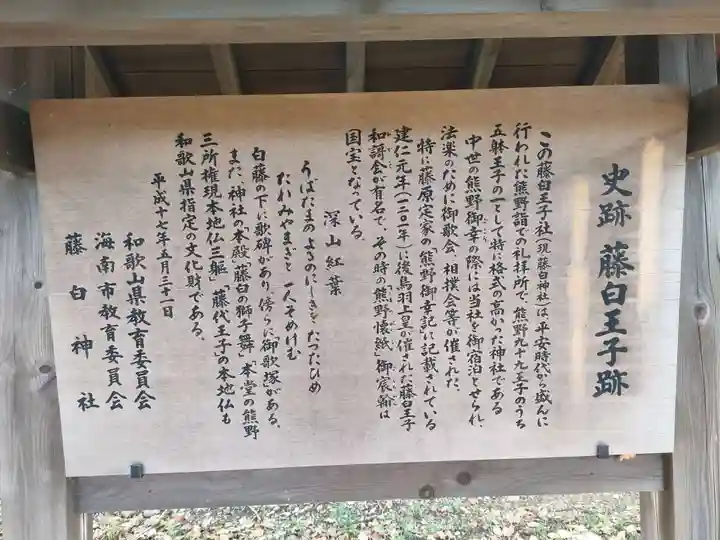 史跡 藤白王子跡
この藤白王子社(現藤白神社)は、平安時代から盛んに
行われた熊野詣での礼拝所で、熊野九十九王子のうち
五躰王子の一として特に格式の高かった神社である
中世の熊野御幸の際には当社を御宿泊とせられ、
法楽のために御歌会、相撲会等が催された。
特に藤原定家の「熊野御幸記」に記載されている
建仁元年(一二〇一年)に後鳥羽上皇が催された「藤白王子
和謌会」が有名で、その時の「熊野懐紙」御宸翰は
国宝となっている。
深山紅葉
うばたまのよるのにしきをたつたひめ
たれみやまぎと一人そめけむ
白藤の下に歌碑があり、傍らに御歌塚がある。
また、神社の本殿「藤白の獅子舞」本堂の熊野
三所権現本地仏三躯」「藤代王子の本地仏も
和歌山県指定の文化財である。
平成十七年五月三十一日
和歌山県教育委員会
海南市教育委員会
藤白神社